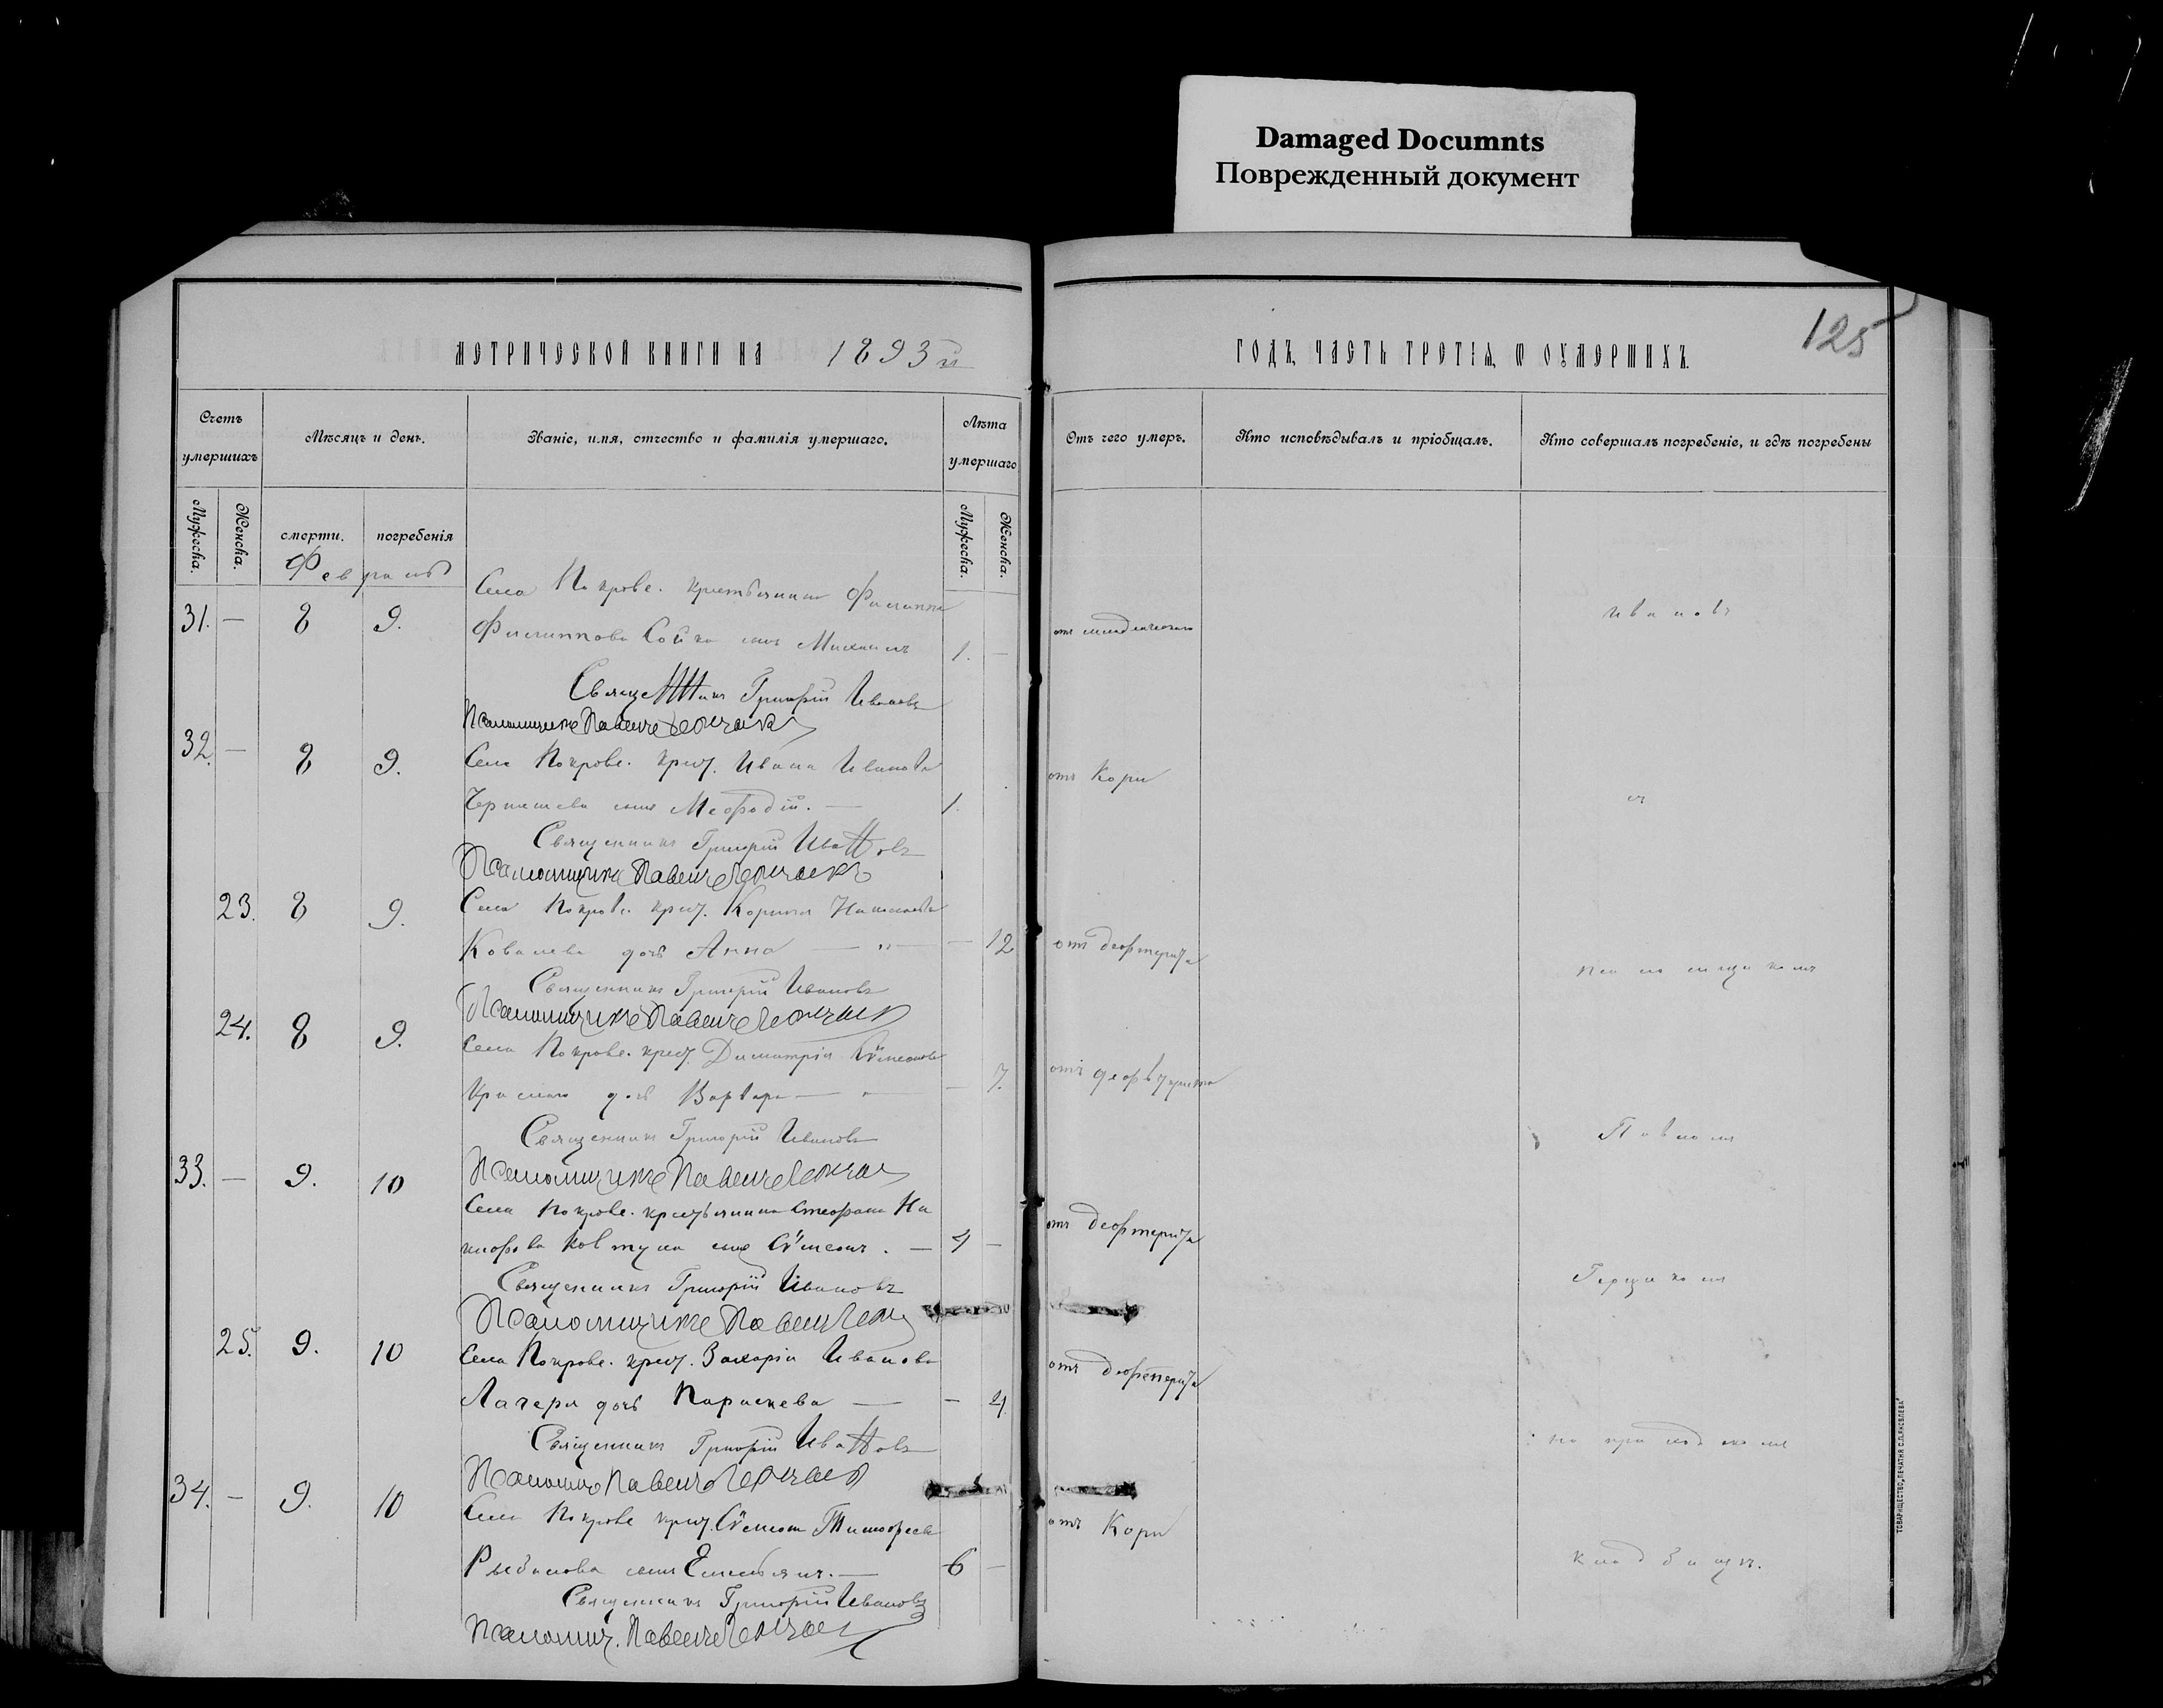 Damaged Documnts
Поврежденный документ
125
МЕТРИЧЕСКОЙ КНИГИ НА 1893й
ГОДЪ, ЧАСТЬ ТРЕТІЯ, Ѿ ОУМЕРШИХЪ.
Счетъ умершихъ
Мѣсяцъ и день.
Званіе, имя, отчество и фамилія умершаго.
Лѣта умершаго
Отъ чего умеръ.
Кто исповѣдывалъ и пріобщалъ.
Кто совершалъ погребеніе, и гдѣ погребены
Мужеска.
Женска.
смерти.
погребенія
Мужеска.
Женска.
Февраль
31. — 8 9. Села Покровс. крестьянина Филиппа
Филиппова Сойка сынъ Михаилъ 1. — отъ младенческаго
Ивановъ
Священникъ Григорій Ивановъ
Псаломщикъ Павелъ
32. — 8 9. Села Покровс. крест. Ивана Иванова отъ Кори
сынъ Меѳодій. — 1.
съ
Священникъ Григорій Ивановъ
Псаломщикъ Павелъ
23. 8 9. Села Покровс. крест. Корнилія
Ковалева дочь Анна — " — — 12 отъ дифтерита
псаломщикомъ
Священникъ Григорій Ивановъ
Псаломщикъ Павелъ
24. 8 9. Села Покровс. крест. Димитрія Сѵмеонова
дочь Варвара — — 7. отъ дифтерита
Священникъ Григорій Ивановъ
Павломъ
Псаломщикъ Павелъ
33. — 9. 10 Села Покровс. крестьянина Стефана Ни
кифорова Ковтуна сынъ Сѵмеонъ. — 4 — отъ дифтерита
Священникъ Григорій Ивановъ
Псаломщикъ Павелъ
25. 9. 10 Села Покровс. крест. Захарія Иванова отъ дифтерита
Лагеря дочь Параскева — — 4.
Священникъ Григорій Ивановъ
на приходскомъ
Псаломщ. Павелъ
34. — 9. 10 Села Покровс. крест. Сѵмеона Тимофеева отъ Кори
Рыбалова сынъ Емельянъ. — 6 —
кладбищѣ.
Священникъ Григорій Ивановъ
Псаломщ. Павелъ
ТОВАРИЩЕСТВО „ПЕЧАТНЯ С.П.ЯКОВЛЕВА"